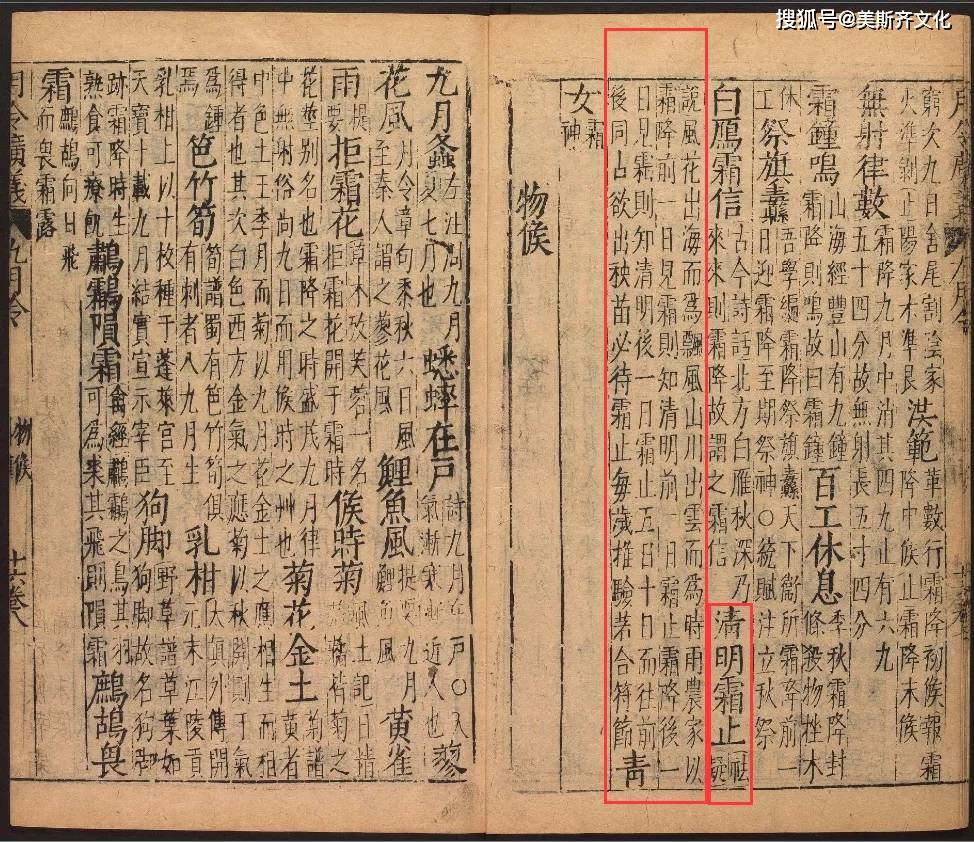 搜狐号@美斯齐文化
窮次九日舍尾割陰家
火準剝止陽家木準艮
洪範
華數行霜降初候報霜
降中候止霜降末候
無射律數
霜降九月中消其四九止有六九
五十四分故無射長五寸四分
霜鐘鳴
山海經豐山有九鐘
霜降則鳴故曰霜鐘
百工休息
季秋霜降封
條殺物挫木
休
工
祭旗纛
吾學編霜降祭旗纛天下衞所霜降前一
日迎霜降至期祭神○統賦注立秋祭
白雁霜信
古今詩話北方白雁秋深乃
來來則霜降故謂之霜信
清明霜止
祛
疑
說風花出海而爲飄風山川出雲而爲時雨農家以
霜降前一日見霜則知清明前一日霜止霜降後一
日見霜則知清明後一日霜止五日十日而往前
後同占欲出秧苗必待霜止每歲推驗若合符節
青
女
霜
神
物候
九月螽
左注周九月
夏七月也
蟋蟀在戶
詩九月在戶○入
氣漸寒漸近人也
蓼
花風
提要九月令章句黍秋六日風
至秦人謂之蓼花風
鯉魚風
提要九月
鯉魚風
黃雀
雨
提
要
拒霜花
草木攷芙蓉一名
拒霜花開于霜時
候時菊
風土記日精
皆菊之
花莖別名也霜降之時盛茂九月律
中無射俗尚九日而用候時之艸也
菊花金土
菊譜
黃者
中色土王季月而菊以九月花金土之應相生而相
得者也其次白色西方金氣之應菊以秋開則于氣
爲鍾
焉
笆竹筍
筍譜蜀有笆竹筍俱
有刺者八九月生
乳柑
真外傳開
元末江陵貢
乳柑上以十枚種于蓬萊宮至
天寶十載九月結實宣示宰臣
狗脚
卽野草譜草葉如
狗脚故名狗脚
跡霜降時生
熟食可療飢
鷫鸘隕霜
禽經鷫鸘之鳥其羽
可爲裘其飛則隕霜
鷓鴣畏
霜
鷓鴣向日飛
而畏霜露
月令廣義
九月令
物候
十六卷
八